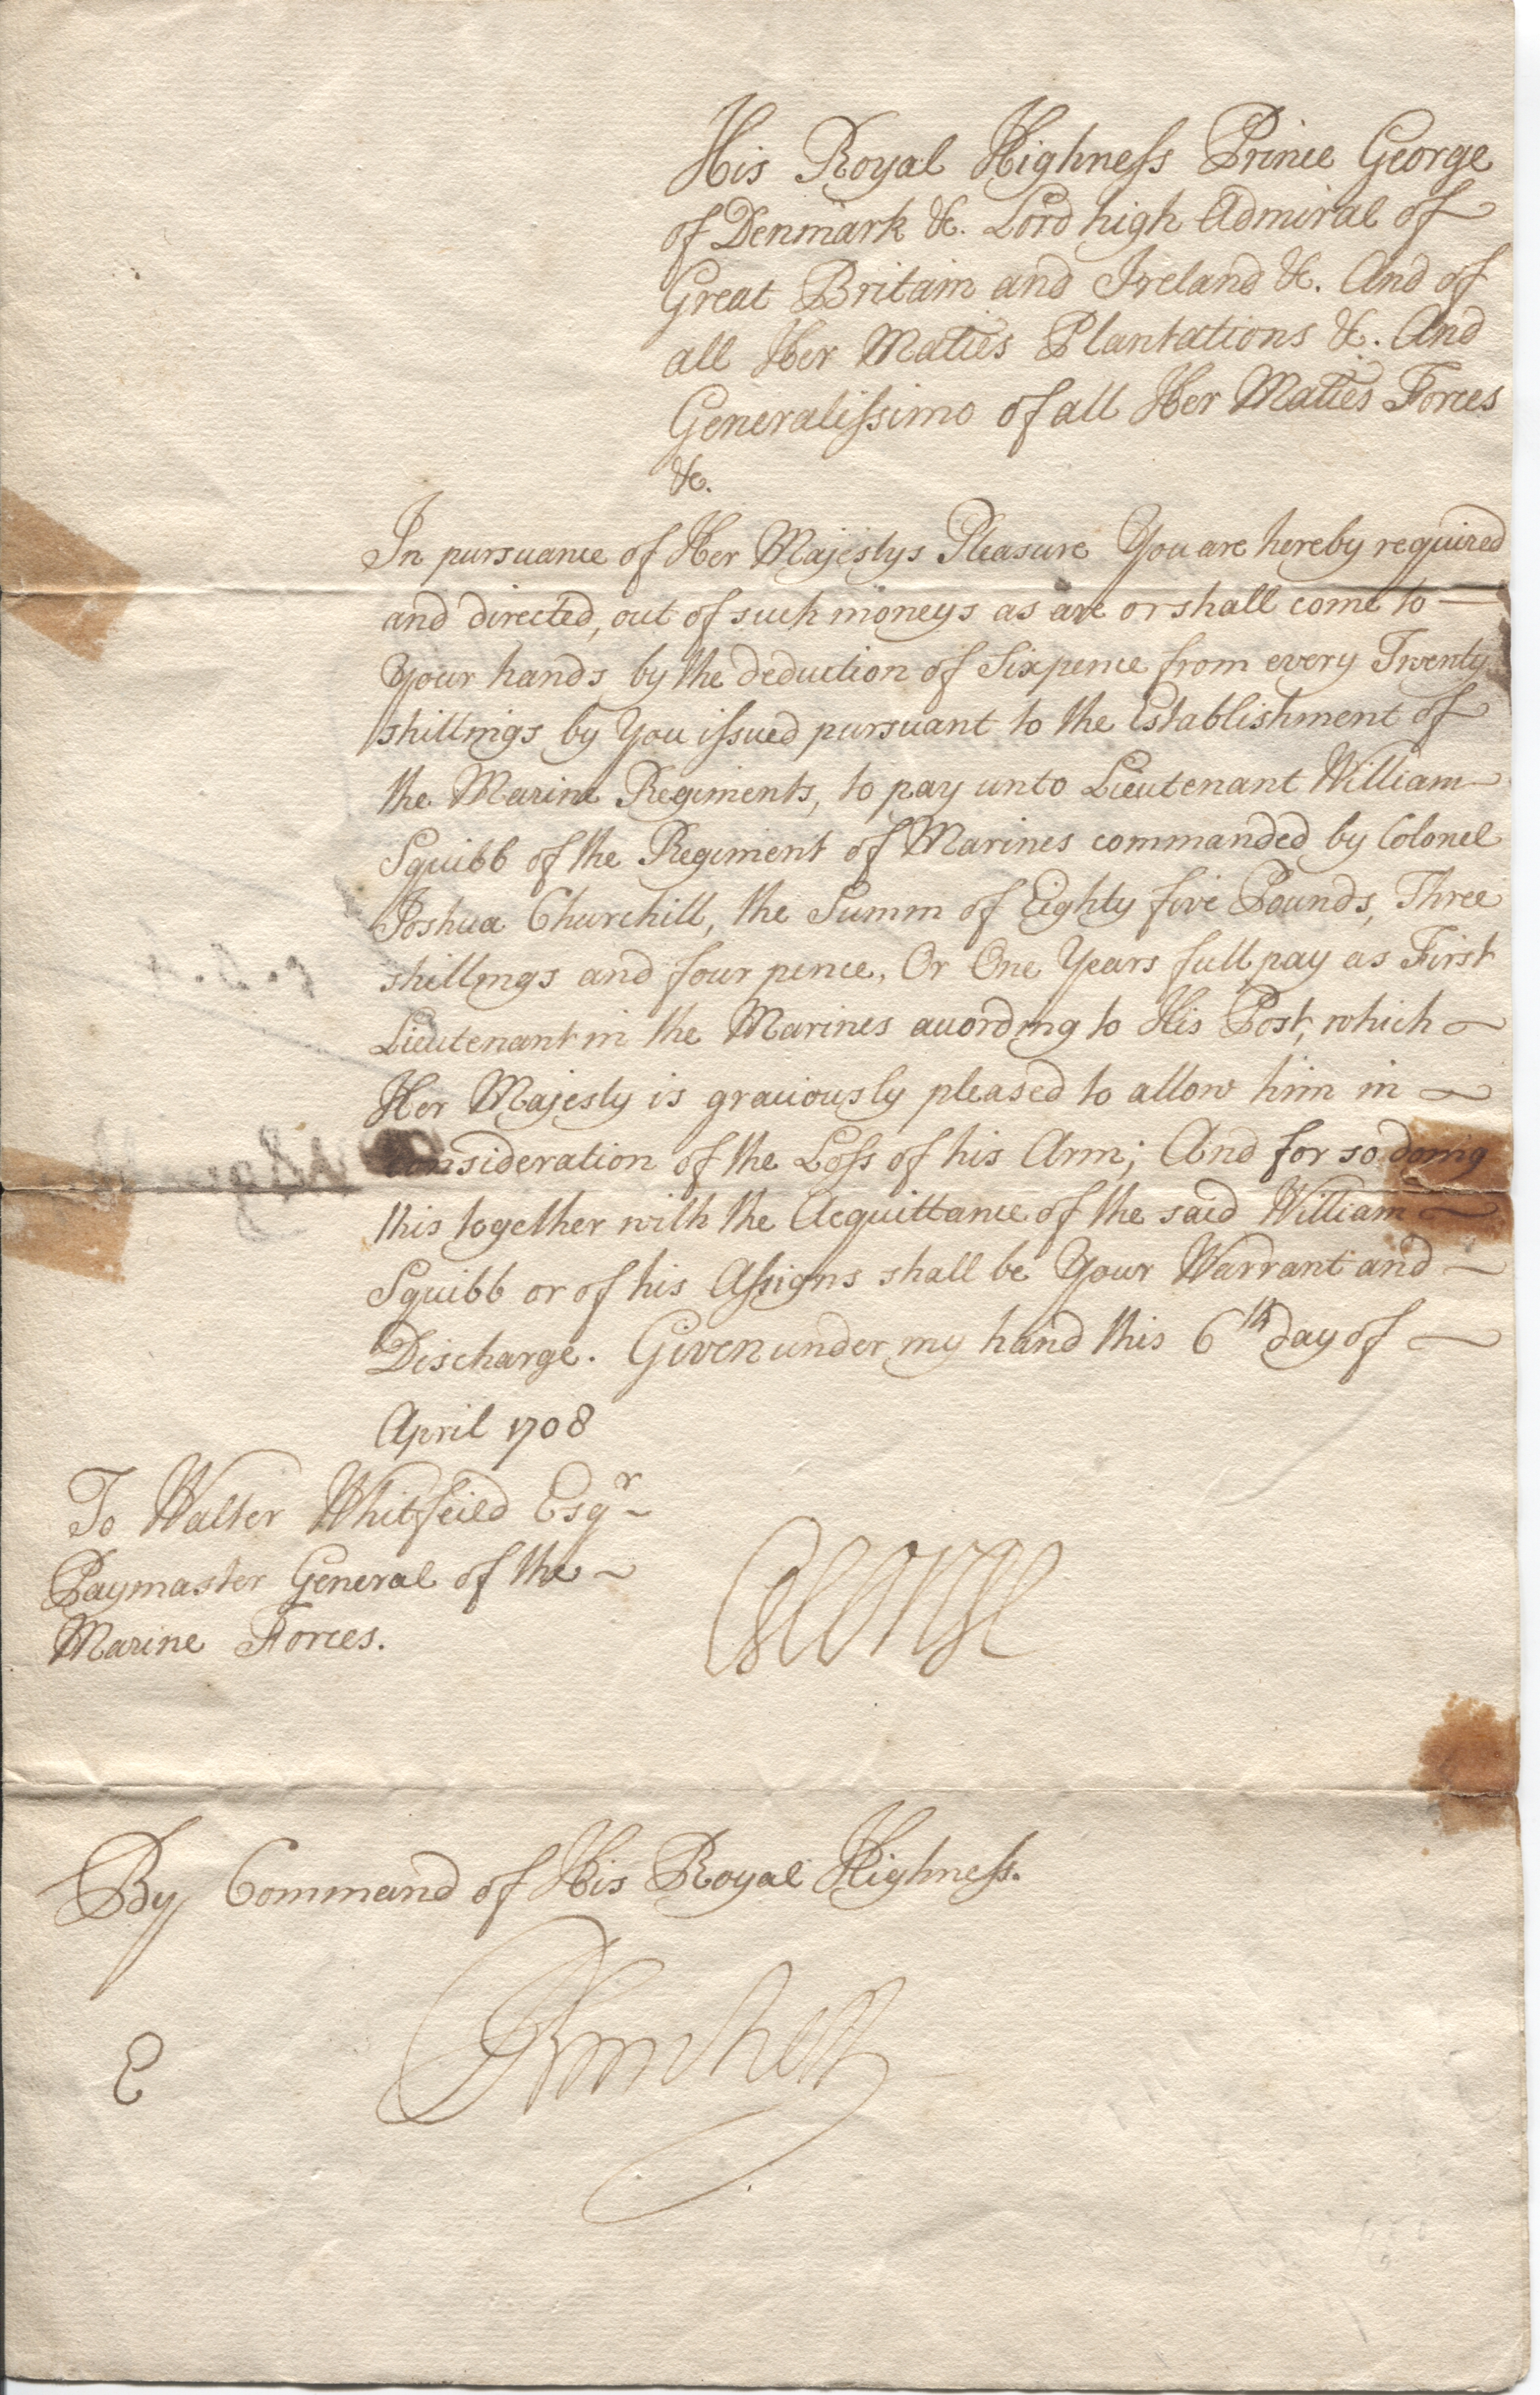 His Royal Highneſs Prince George
of Denmark &c. Lord high Admiral of
Great Britain and Ireland &c. And of
all Her Maties Plantations &c. And
Generaliſsimo of all Her Maties Forces
&c.
In pursuance of Her Majestys Pleasure You are hereby required
and directed, out of such moneys as are or shall come to
Your hands by the deduction of Sixpence from every Twenty
shillings by You iſsued pursuant to the Establishment of
the Marine Regiments, to pay unto Lieutenant William
Squibb of the Regiment of Marines commanded by Colonel
Joshua Churchill, the Summ of Eighty five Pounds, Three
shillings and four pence, Or One Years full pay as First
Lieutenant in the Marines according to His Post, which
Her Majesty is graciously pleased to allow him in
consideration of the Loſs of his Arm; And for so doing
this together with the Acquittance of the said William
Squibb or of his Aſsigns shall be Your Warrant and
Discharge. Given under my hand this 6th day of
April 1708
To Walter Whitfeild Esqr
Paymaster General of the
Marine Forces.
George
By Command of His Royal Highneſs.
E